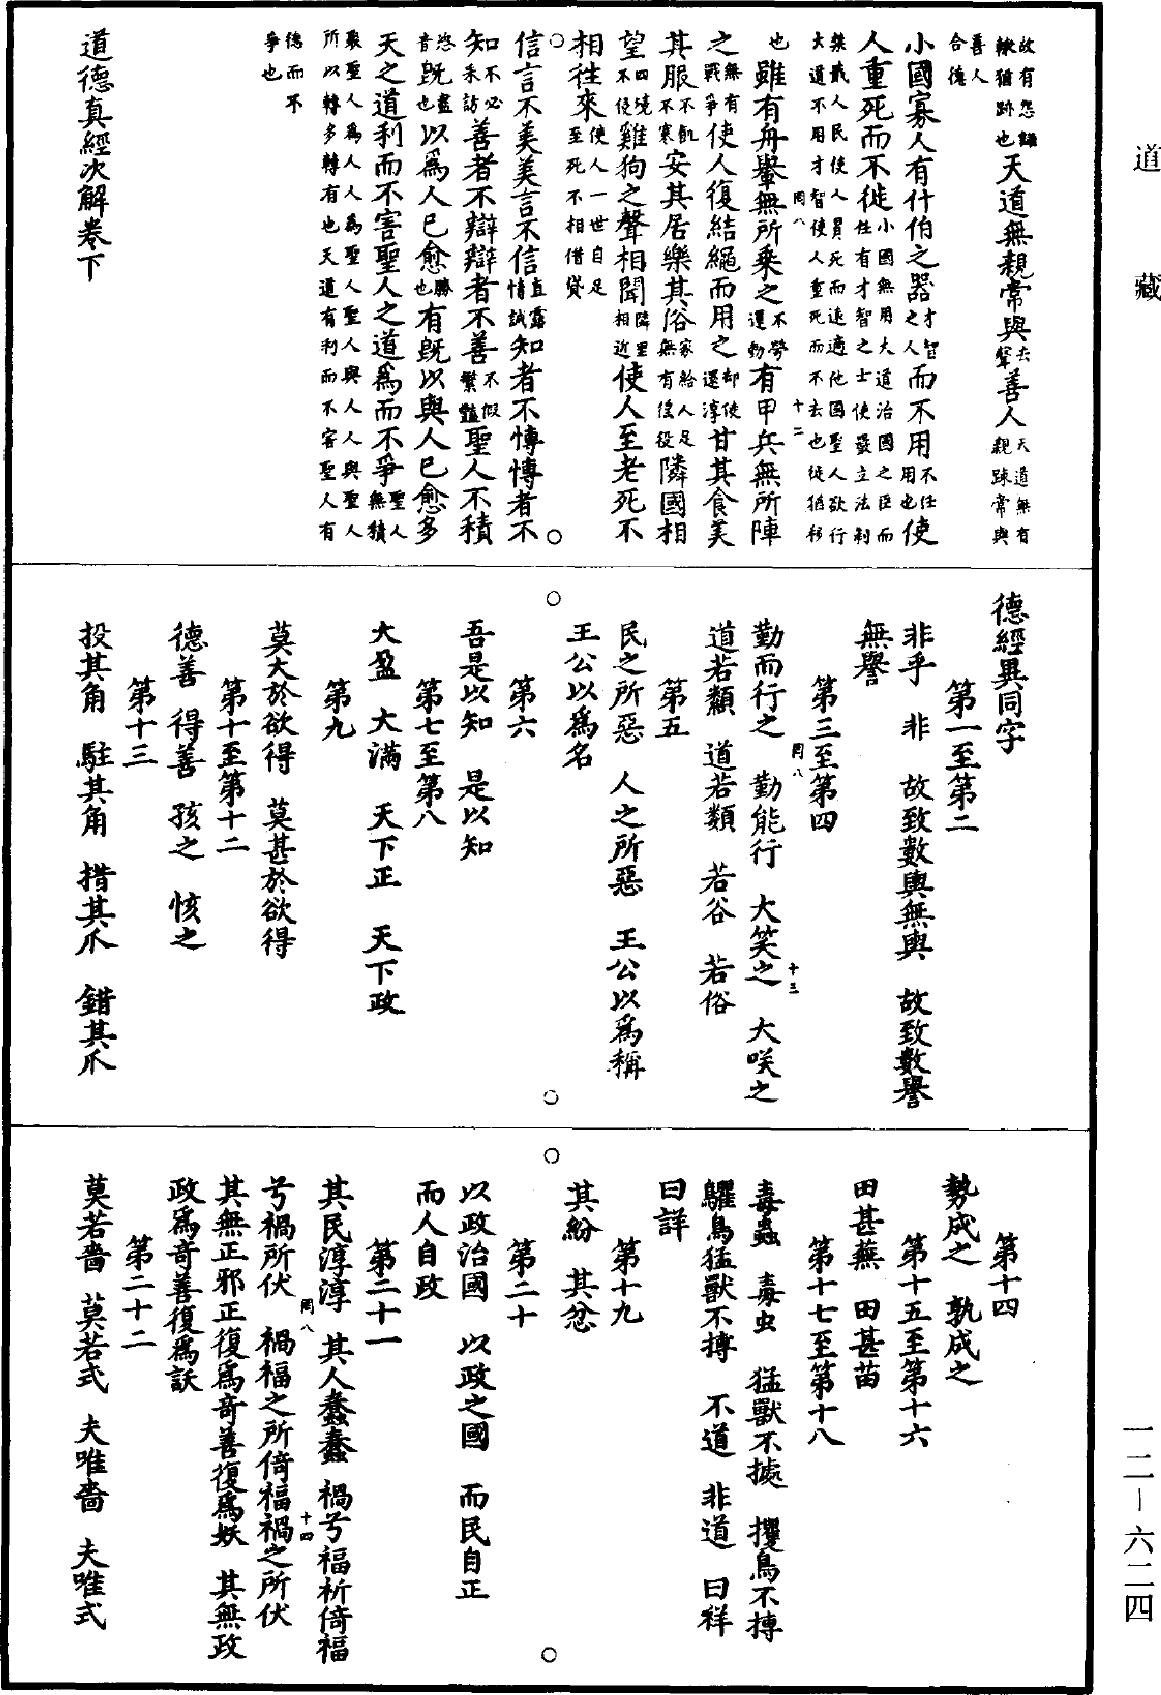 道藏
故有怨讎
轍猶跡也
天道無親常與
善人
天道無有
親踈常與
善人
合德
小國寡人有什伯之器
才智
之人
而不用
不任
用也
使
人重死而不徙
小國無用大道治國之臣而
任有才智之士使發立法制
大道不用才智使人重死而不去也徙猶移
也
雖有舟轝無所乘之
不勞
運動
有甲兵無所陣
之
無有
戰爭
使人復結繩而用之
却使
還淳
甘其食美
其服
不飢
不寒
安其居樂其俗
家給人足
無有徭役
隣國相
望
四境
不侵
雞狗之聲相聞
隣里
相近
使人至老死不
相往來
使人一世自足
至死不相借貸
信言不美美言不信
直露
情誠
知者不愽愽者不
知
不必
采訪
善者不辯辯者不善
不假
繁豔
聖人不積
既
盡也
以為人已愈
勝也
有既以與人已愈多
天之道利而不害聖人之道為而不爭
聖人
無積
聚聖人為人人為聖人聖人與人人與聖人
所以轉多轉有也天道有利而不害聖人有
德而不
爭也
道德真經次解卷下
德經異同字
第一至第二
非乎 非 故致數輿無輿 故致數譽
無譽
第三至第四
勤而行之 勤能行 大笑之 大咲之
道若纇 道若類 若谷 若俗
第五
民之所惡 人之所惡 王公以為稱
王公以為名
第六
吾是以知 是以知
第七至第八
大盈 大滿 天下正 天下政
第九
莫大於欲得 莫甚於欲得
第十至第十二
德善 得善 孩之 㤥之
第十三
投其角 駐其角 措其爪 錯其爪
第十四
勢成之 孰成之
第十五至第十六
田甚蕪 田甚苗
第十七至第十八
毒蟲 毒虫 猛獸不據 攫鳥不搏
鸜鳥猛獸不搏 不道 非道 曰祥
曰詳
第十九
其紛 其忿
第二十
以政治國 以政之國 而民自正
而人自政
第二十一
其民淳淳 其人蠢蠢 禍兮福所倚福
兮禍所伏 禍福之所倚福禍之所伏
其無正邪正復為奇善復為妖 其無政
政為奇善復為訞
第二十二
莫若嗇 莫若式 夫唯嗇 夫唯式
罔八 十二
罔八 十三
罔八 十四
一二—六二四